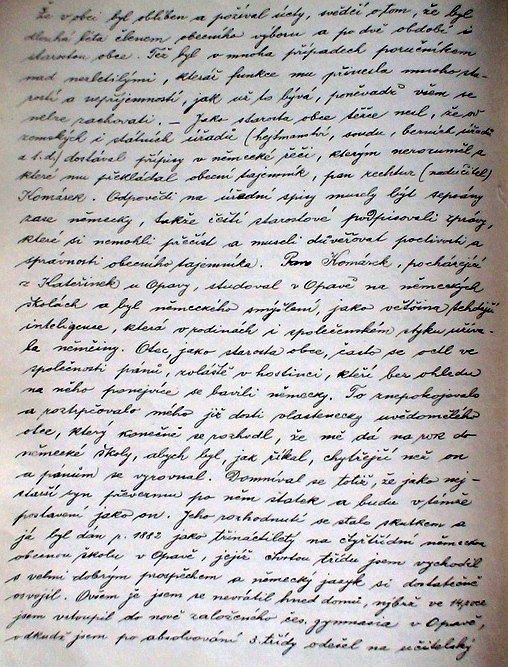 Že v obci byl oblíben a požíval úcty, svědčí o tom, že byl
dlouhá léta členem obecního výboru a po dvě období i
starostou obce. Též byl v mnoha případech poručníkem
nad nezletilými, kteráž funkce mu přinesla mnoho sta-
rostí a nepříjemností, jak už to bývá, poněvadž všem se
nelze zachovati. — Jako starosta obce těžce nesl, že od
zemských i státních úřadů (hejtmanství, soudu, berních úřadů
a t. d.) dostával přípisy v německé řeči, kterým nerozuměl a
které mu překládal obecní tajemník, pan rechtur (nadučitel)
Komárek. Odpovědi na úřední spisy musely být sepsány
zase německy, takže čeští starostové podpisovali zprávy,
které si nemohli přečíst a museli důvěřovat poctivosti a
správnosti obecního tajemníka. Pan Komárek, pocházející
z Kateřinek u Opavy, studoval v Opavě na německých
školách a byl německého smýšlení, jako většina tehdejší
inteligence, která v rodinách i společenském styku užíva-
la němčiny. Otec, jako starosta obce, často se octl ve
společnosti pánů, zvláště v hostinci, kteří bez ohledu
na něho ponejvíce se bavili německy. To znepokojovalo
a roztrpčovalo mého již dosti vlastenecky uvědomělého
otce, který konečně se rozhodl, že mě dá na rok do
německé školy, abych byl, jak říkal, chytřejší než on
a pánům se vyrovnal. Domníval se totiž, že jako nej-
starší syn převezmu po něm statek a budu v témže
postavení jako on. Jeho rozhodnutí se stalo skutkem a
já byl dán r. 1882 jako třináctiletý na čtyřtřídní německou
obecnou školu v Opavě, jejíž čtvrtou třídu jsem vychodil
s velmi dobrým prospěchem a německý jazyk si dostatečně
osvojil. Ovšem že jsem se nevrátil hned domů, nýbrž ve 14. roce
jsem vstoupil do nově založeného čes. gymnasia v Opavě,
odkudž jsem po absolvování 3. třídy odešel na učitelský